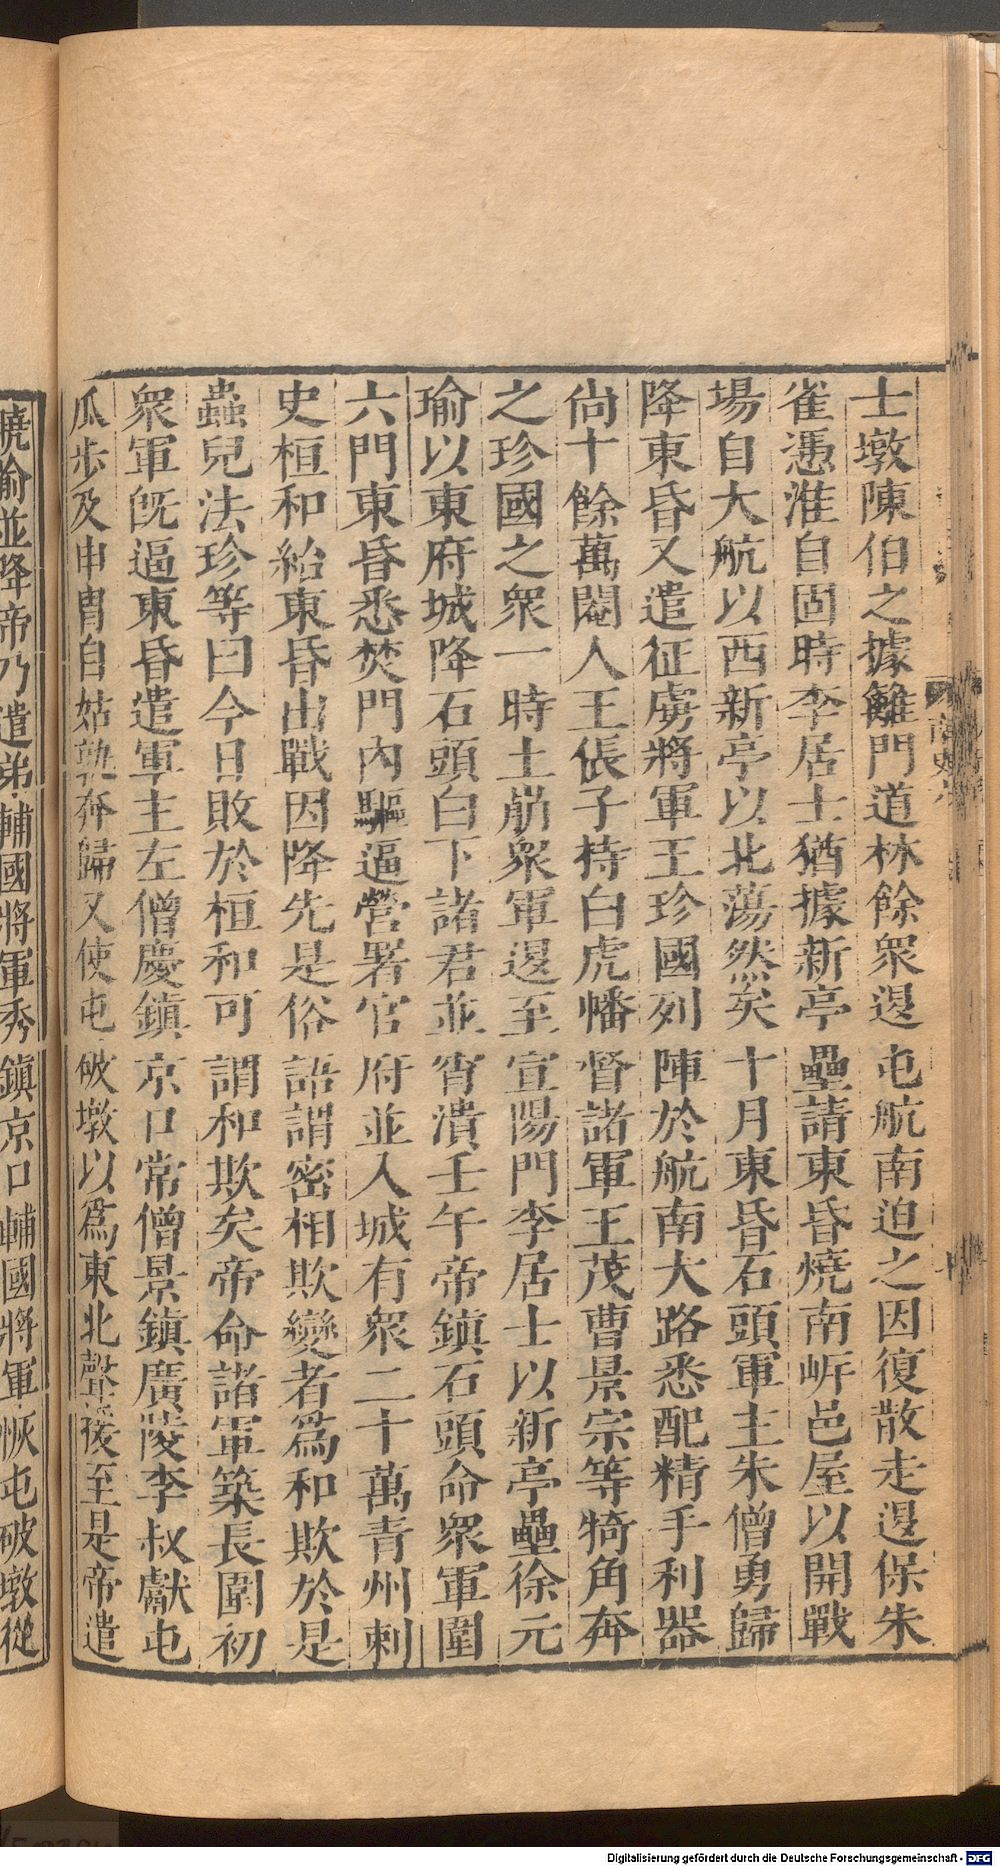 士墩陳伯之據籬門道林餘衆退屯航南迫之因復散走退保朱
雀憑淮自固時李居士猶據新亭壘請東昏燒南岍邑屋以開戰
場自大航以西新亭以北蕩然矣十月東昏石頭軍主朱僧勇歸
降東昏又遣征虜將軍王珍國列陣於航南大路悉配精手利器
尙十餘萬閹人王倀子持白虎幡督諸軍王茂曹景宗等犄角奔
之珍國之衆一時土崩衆軍退至宣陽門李居士以新亭壘徐元
瑜以東府城降石頭白下諸君並宵潰壬午帝鎮石頭命衆軍圍
六門東昏悉焚門內驅逼營署官府並入城有衆二十萬青州刺
史桓和紿東昏出戰因降先是俗語謂密相欺變者爲和欺於是
蟲兒法珍等曰今日敗於桓和可謂和欺矣帝命諸軍築長圍初
衆軍旣逼東昏遣軍主左僧慶鎮京口常僧景鎮廣陵李叔獻屯
瓜步及申胄自姑孰奔歸又使屯破墩以爲東北聲援至是帝遣
曉喻並降帝乃遣弟輔國將軍秀鎮京口輔國將軍恢屯破墩從
Digitalisierung gefördert durch die Deutsche Forschungsgemeinschaft - DFG